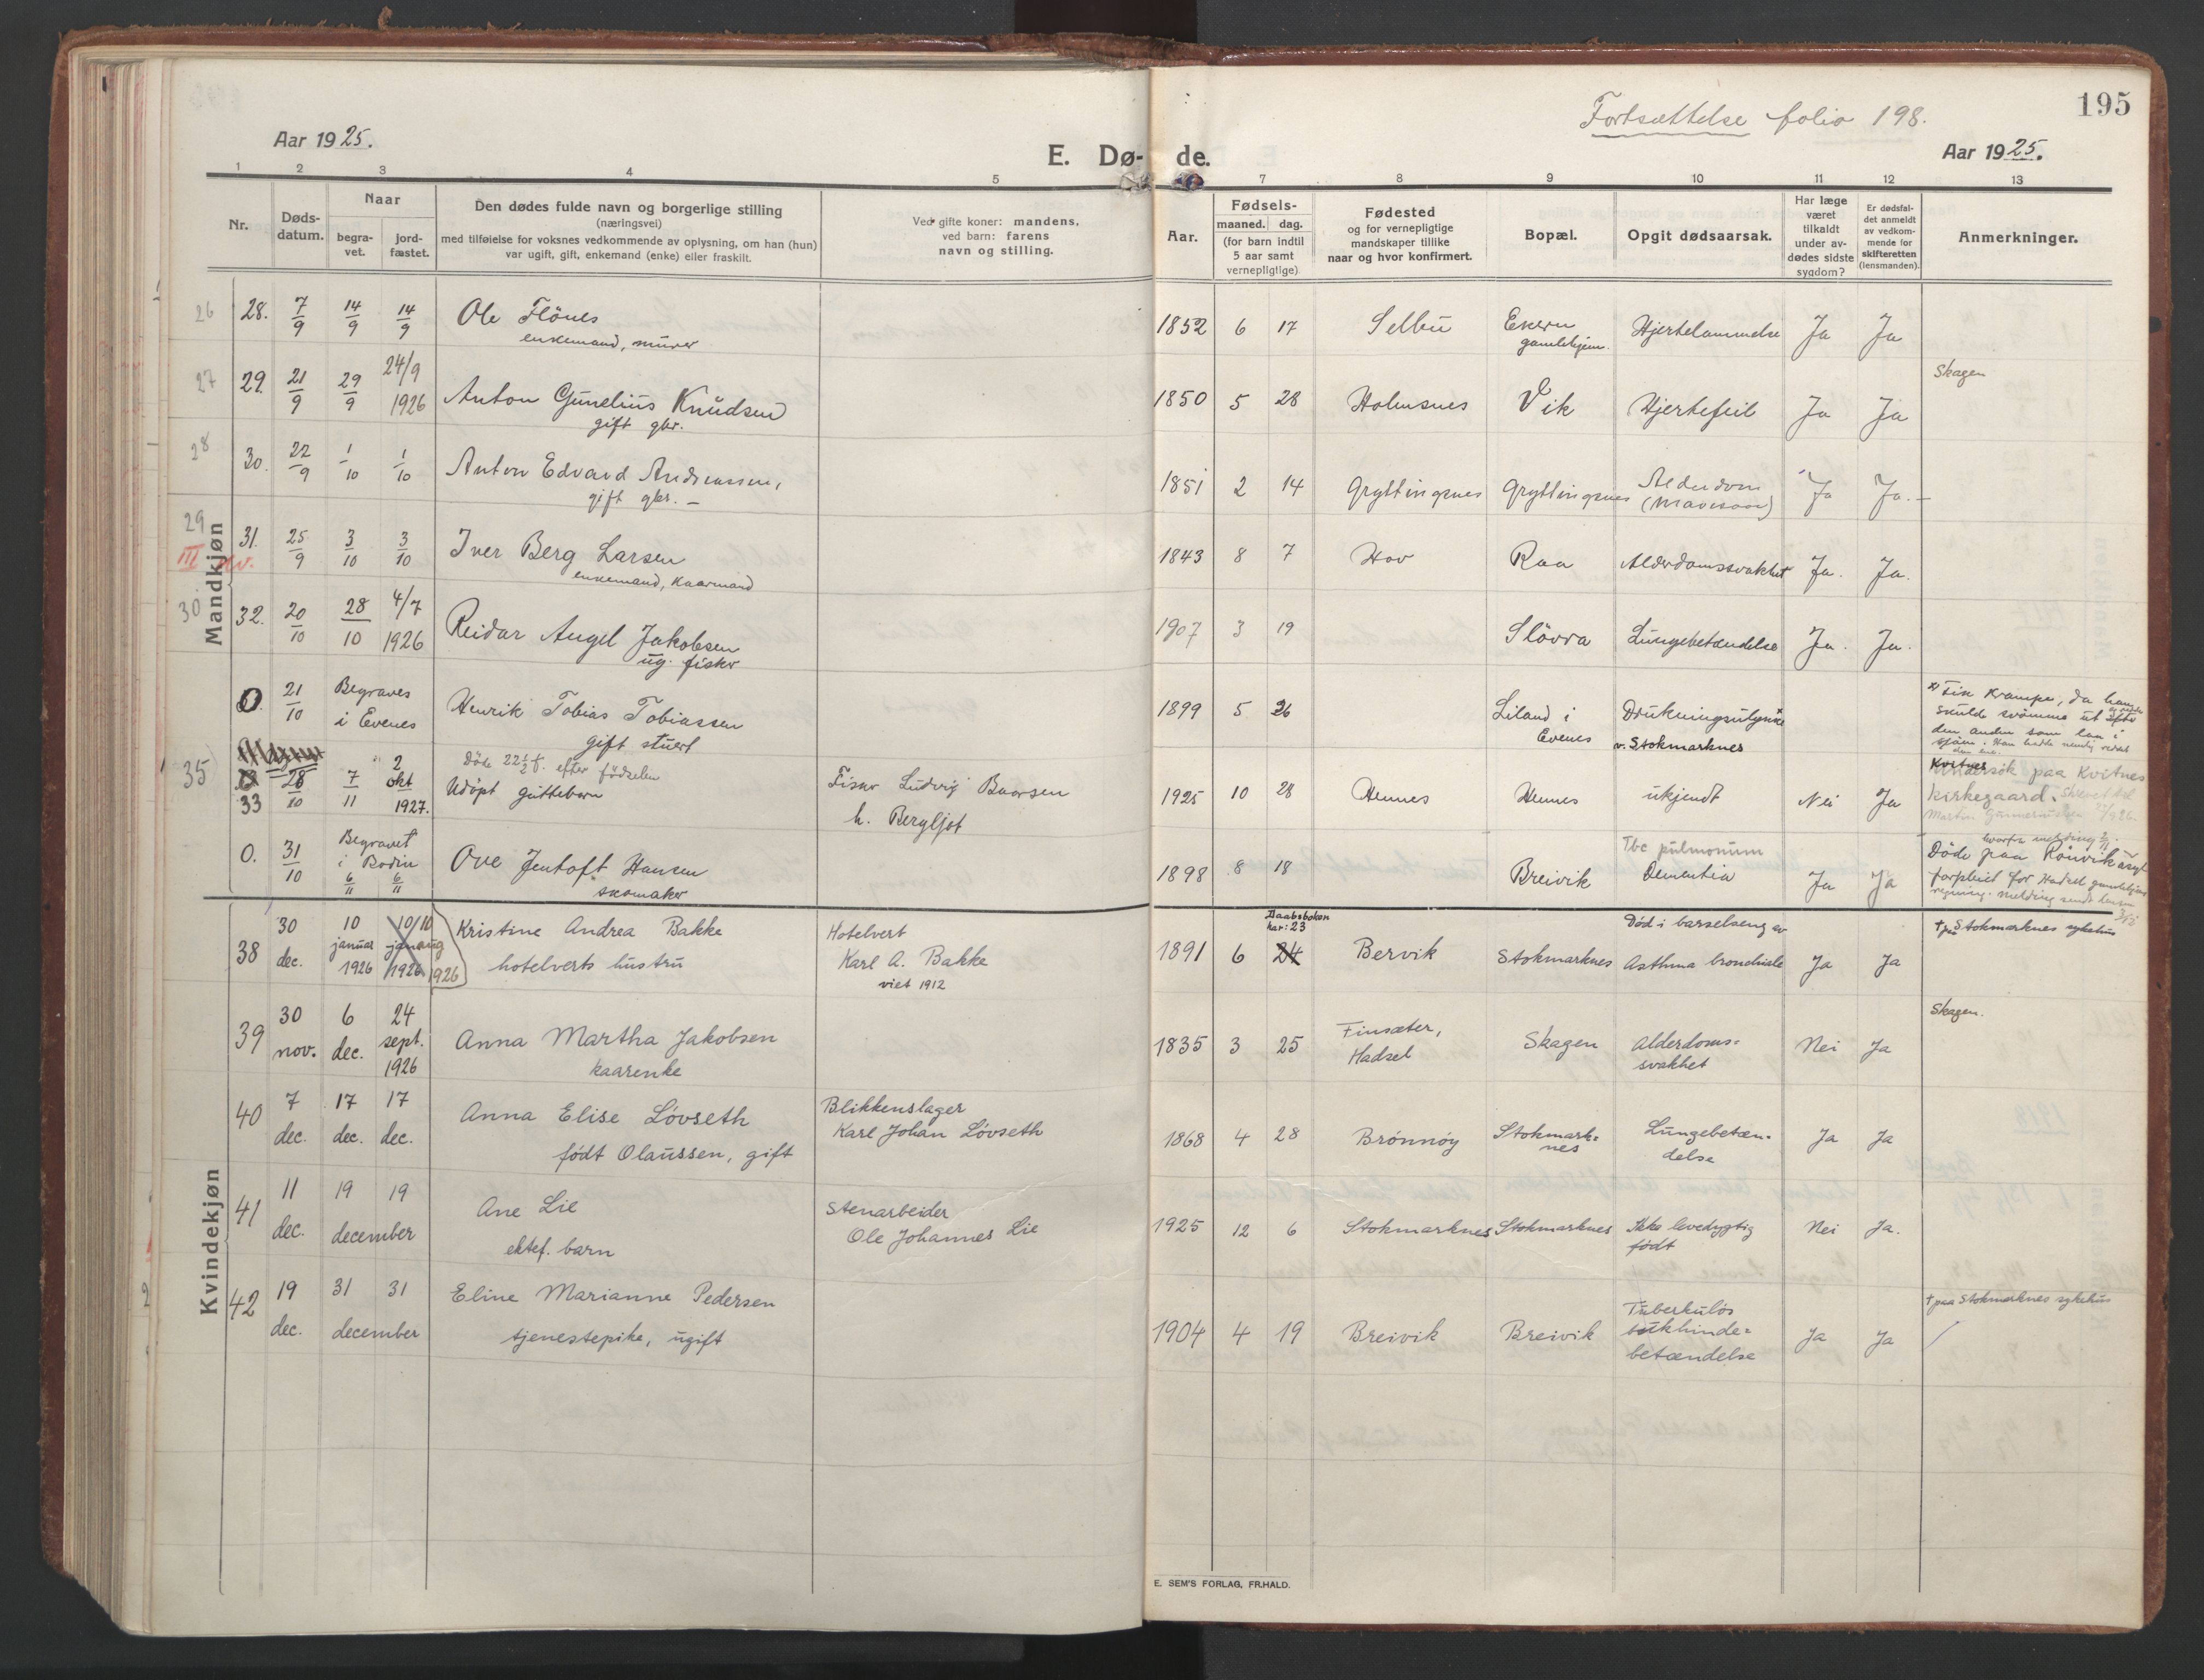 Fortsættelse folio 198.
195
Aar 1925.
E. Dø-
de.
Aar 1925.
1 2 3 4 5 7 8 9 10 11 12 13
Nr.
Døds-
datum.
Naar
begra-
vet.
jord-
fæstet.
Den dødes fulde navn og borgerlige stilling
(næringsvei)
med tilføielse for voksnes vedkommende av oplysning, om han (hun)
var ugift, gift, enkemand (enke) eller fraskilt.
Ved gifte koner: mandens,
ved barn: farens
navn og stilling.
Aar.
Fødsels-
maaned. dag.
(for barn indtil
5 aar samt
vernepligtige)
Fødested
og for vernepligtige
mandskaper tillike
naar og hvor konfirmert.
Bopæl.
Opgit dødsaarsak.
Har læge
været
tilkaldt
under av-
dødes sidste
sygdom?
Er dødsfal-
det anmeldt
av vedkom-
mende for
skifteretten
(lensmanden).
Anmerkninger.
Mandkjøn
26 28. 7/9 14/9 14/9 Ole Flönes 1852 6 17 Selbu Ekern Hjertelammelse Ja Ja
enkemand, murer gamlehjem.
27 29. 21/9 29/9 24/9 1926 Anton Gunelius Knudsen 1850 5 28 Holmsnes Vik Hjertefeil Ja Ja Skagen
gift gbr.
28 30. 22/9 1/10 1/10 Anton Edvard Andreassen, 1851 2 14 Gryttingsnes Gryttingsnes Alderdom Ja Ja.
gift gbr. —
29 31. 25/9 3/10 3/10 Iver Berg Larsen 1843 8 7 Hov Raa Alderdomssvakhet Ja. Ja.
III kv. enkemand, Kaarmand
30 32. 20/10 28/10 4/7 1926 Reidar Angel Jakobsen 1907 3 19 Slövra Lungebetændelse Ja. Ja.
ug. fisker
0. 21/10 Begraves i Evenes Henrik Tobias Tobiassen 1899 5 26 Liland i Evenes Drukningsulykke x
gift stuert v. Stokmarknes
x) Fik Krampe, da han
skulde svömme ut efter
den anden som laa i
sjøen. Han hadde nemlig reddet
den ene.
35 33 28/10 7/11 2 okt 1927. Döde 22½ t. efter födselen
Udöpt guttebarn Fisker Ludvig Baarsen 1925 10 28 Hennes Hennes ukjendt Nei Ja
h. Bergljot
Kvitnes
undersök paa Kvitnes
kirkegaard.
0. 31/10 Begravet i Bodin 6/11 6/11 Ove Jentoft Hansen 1898 8 18 Breivik Tbc pulmonum
Dementia Ja Ja
skomaker
Döde paa Rönvik asyl
forpleiet for Hadsel gamlehjems
regning. Melding sendt lensm
Kvindekjøn
38 30 dec. 10 januar 1926 10/10 jan aug 1926 1926 Kristine Andrea Bakke Hotelvert 1891 6 24 Daabsboken har: 23 Bervik Stokmarknes Død i barselseng av
Asthma bronchiale Ja Ja † paa Stokmarknes sykehus
hotelverts hustru Karl A. Bakke
viet 1912
39 30 nov. 6 dec. 24 sept. 1926 Anna Martha Jakobsen 1835 3 25 Finsæter, Hadsel Skagen Alderdoms=
svakhet Nei Ja Skagen.
kaarenke
40 7 dec. 17 dec. 17 dec. Anna Elise Lövseth Blikkenslager 1868 4 28 Brönnöy Stokmark=
nes Lungebetæn-
delse Ja Ja
født Olaussen, gift Karl Johan Lövseth
41 11 dec. 19 19 december Ane Lie Stenarbeider 1925 12 6 Stokmarknes Stokmarknes Ikke levedygtig
født Nei Ja.
ektef. barn Ole Johannes Lie
42 19 dec. 31 31 december Eline Marianne Pedersen 1904 4 19 Breivik Breivik Tuberkuløs
betændelse Ja Ja † paa Stokmarknes sykehus
tjenestepike, ugift
E. SEM'S FORLAG, FR.HALD.